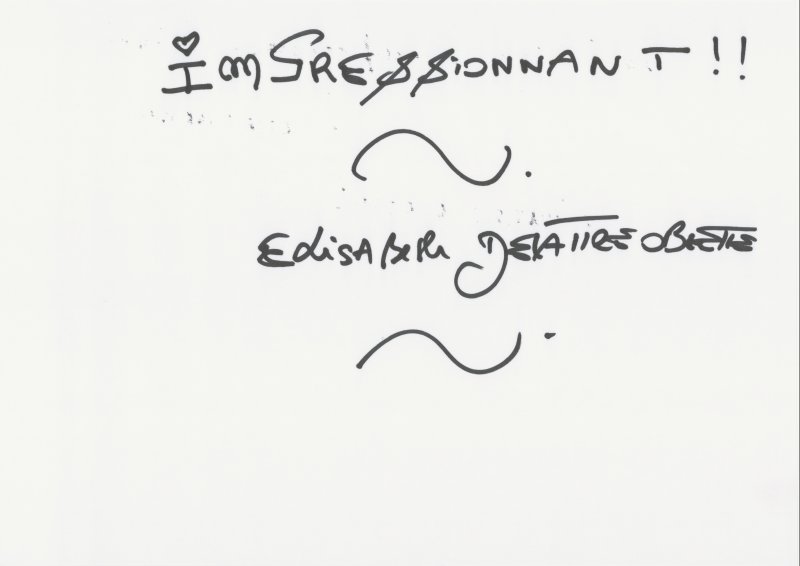 IMPRESSIONNANT !!
ELISABETH DELATTRE